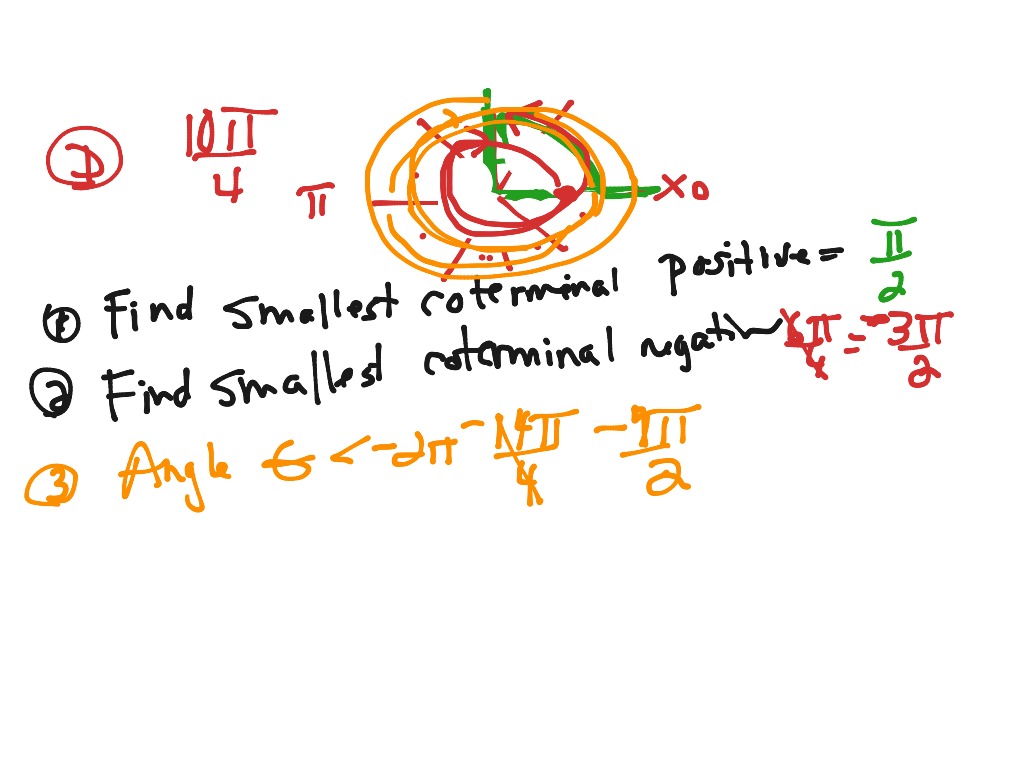 ① 10π/4
π
x 0
① Find smallest coterminal positive = π/2
② Find smallest coterminal negativ 6π/4 = -3π/2
③ Angle θ < -2π -14π/4 -7π/2